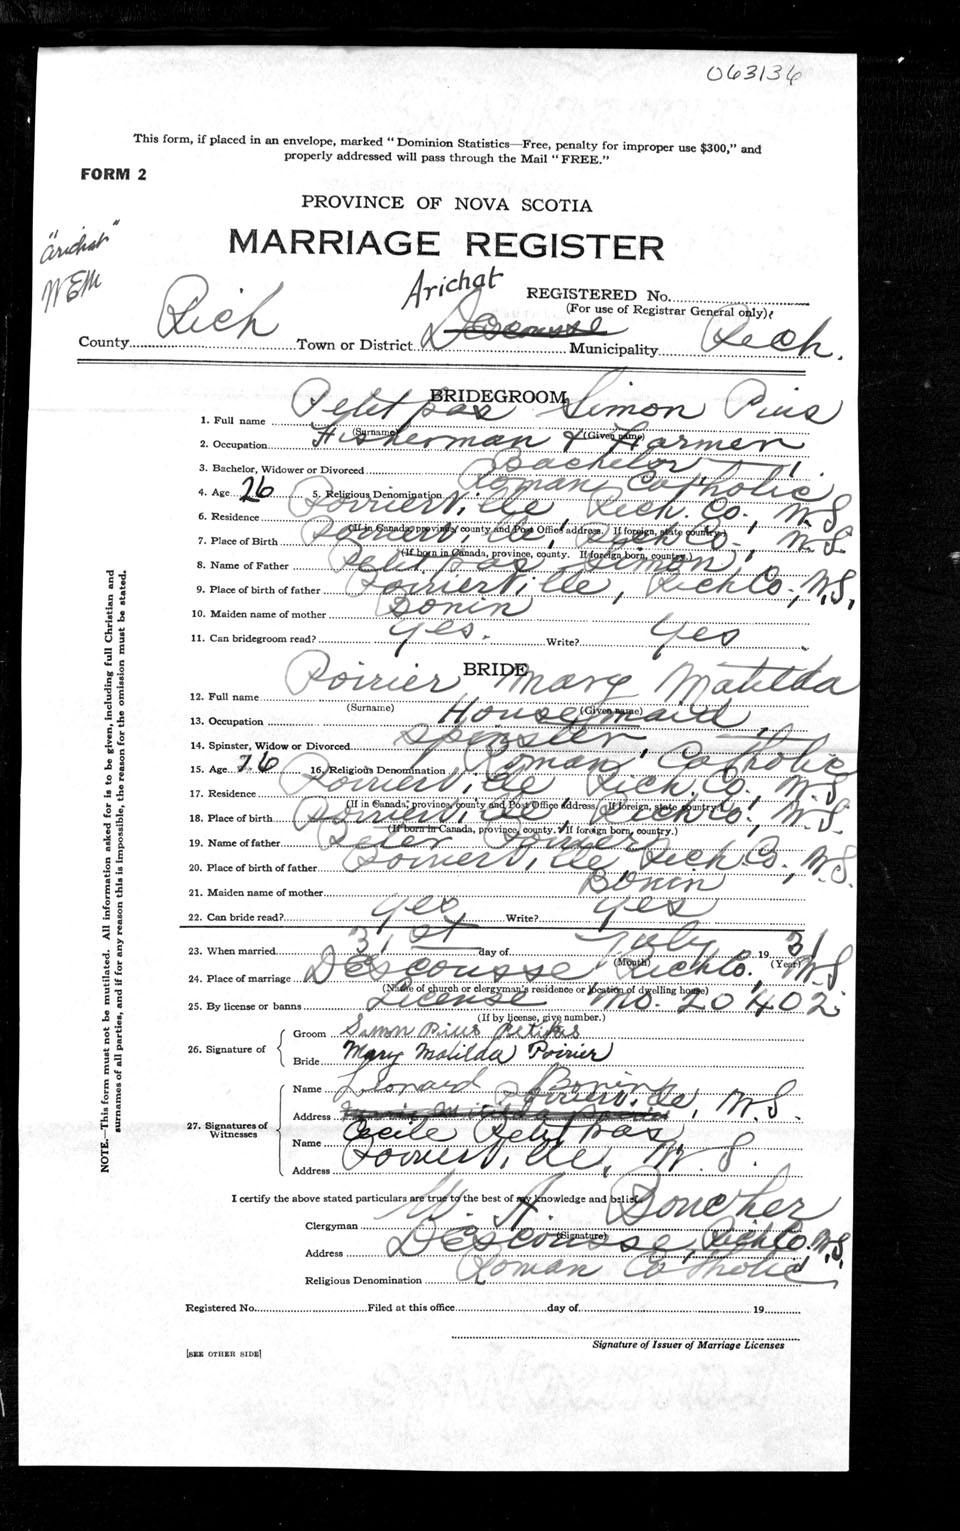 063136
This form, if placed in an envelope, marked "Dominion Statistics—Free, penalty for improper use $300," and
properly addressed will pass through the Mail "FREE."
FORM 2
PROVINCE OF NOVA SCOTIA
"Arichat"
WEM
MARRIAGE REGISTER
Arichat
REGISTERED No.
(For use of Registrar General only)
County Rich Town or District Descousse Municipality Rich.
BRIDEGROOM
1. Full name Petit pas Simon Pius
(Surname) (Given name)
2. Occupation Fisherman & Farmer
3. Bachelor, Widower or Divorced Bachelor
4. Age 26 5. Religious Denomination Roman Catholic
6. Residence Poirierville, Rich. Co., N.S.
(If in Canada, province, county and Post Office address. If foreign, state country.)
7. Place of Birth Poirierville, Rich Co., N.S.
(If born in Canada, province, county. If foreign born, country.)
8. Name of Father Petit pas Simon
9. Place of birth of father Poirierville, Rich Co., N.S.
10. Maiden name of mother Bonin
11. Can bridegroom read? Yes. Write? Yes
BRIDE
12. Full name Poirier Mary Matilda
(Surname) (Given name)
13. Occupation Housemaid
14. Spinster, Widow or Divorced Spinster
15. Age 26 16. Religious Denomination Roman Catholic
17. Residence Poirierville Rich. Co., N.S.
(If in Canada, province, county and Post Office address. If foreign, state country.)
18. Place of birth Poirierville, Rich Co., N.S.
(If born in Canada, province, county. If foreign born, country.)
19. Name of father Peter Poirier
20. Place of birth of father Poirierville, Rich. Co., N.S.
21. Maiden name of mother Bonin
22. Can bride read? Yes Write? Yes
23. When married 31st day of July 1931
(Month) (Year)
24. Place of marriage Descousse Rich Co. N.S.
(Name of church or clergyman's residence or location of dwelling house)
25. By license or banns License No. 20402
(If by license, give number.)
26. Signature of
Groom Simon Pius Petitpas
Bride Mary Matilda Poirier
27. Signatures of Witnesses
Name Leonard Bonin
Address Poirierville, N.S.
Name Cecile Petit pas
Address Poirierville, N.S.
I certify the above stated particulars are true to the best of my knowledge and belief.
Clergyman W. A. Boucher
(Signature)
Address Descousse, Rich Co. N.S.
Religious Denomination Roman Catholic
Registered No. Filed at this office day of 19
Signature of Issuer of Marriage Licenses
[SEE OTHER SIDE]
NOTE.—This form must not be mutilated. All information asked for is to be given, including full Christian and
surnames of all parties, and if for any reason this is impossible, the reason for the omission must be stated.